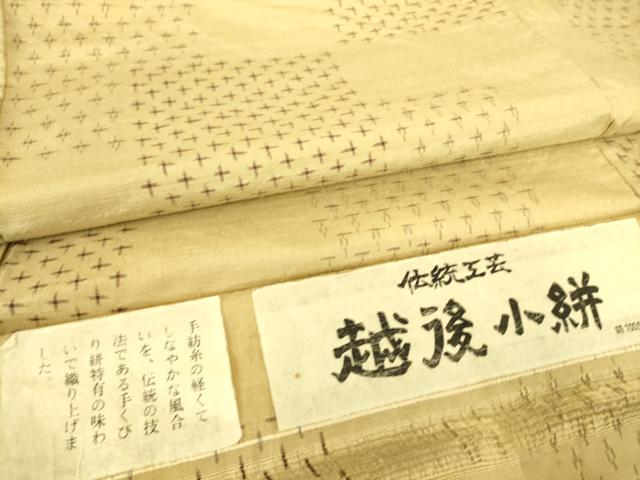 伝統工芸
越後小絣
手紡糸の軽くて
しなやかな風合
いを、伝統の技
法である手くび
り絣特有の味わ
いで織り上げま
した。